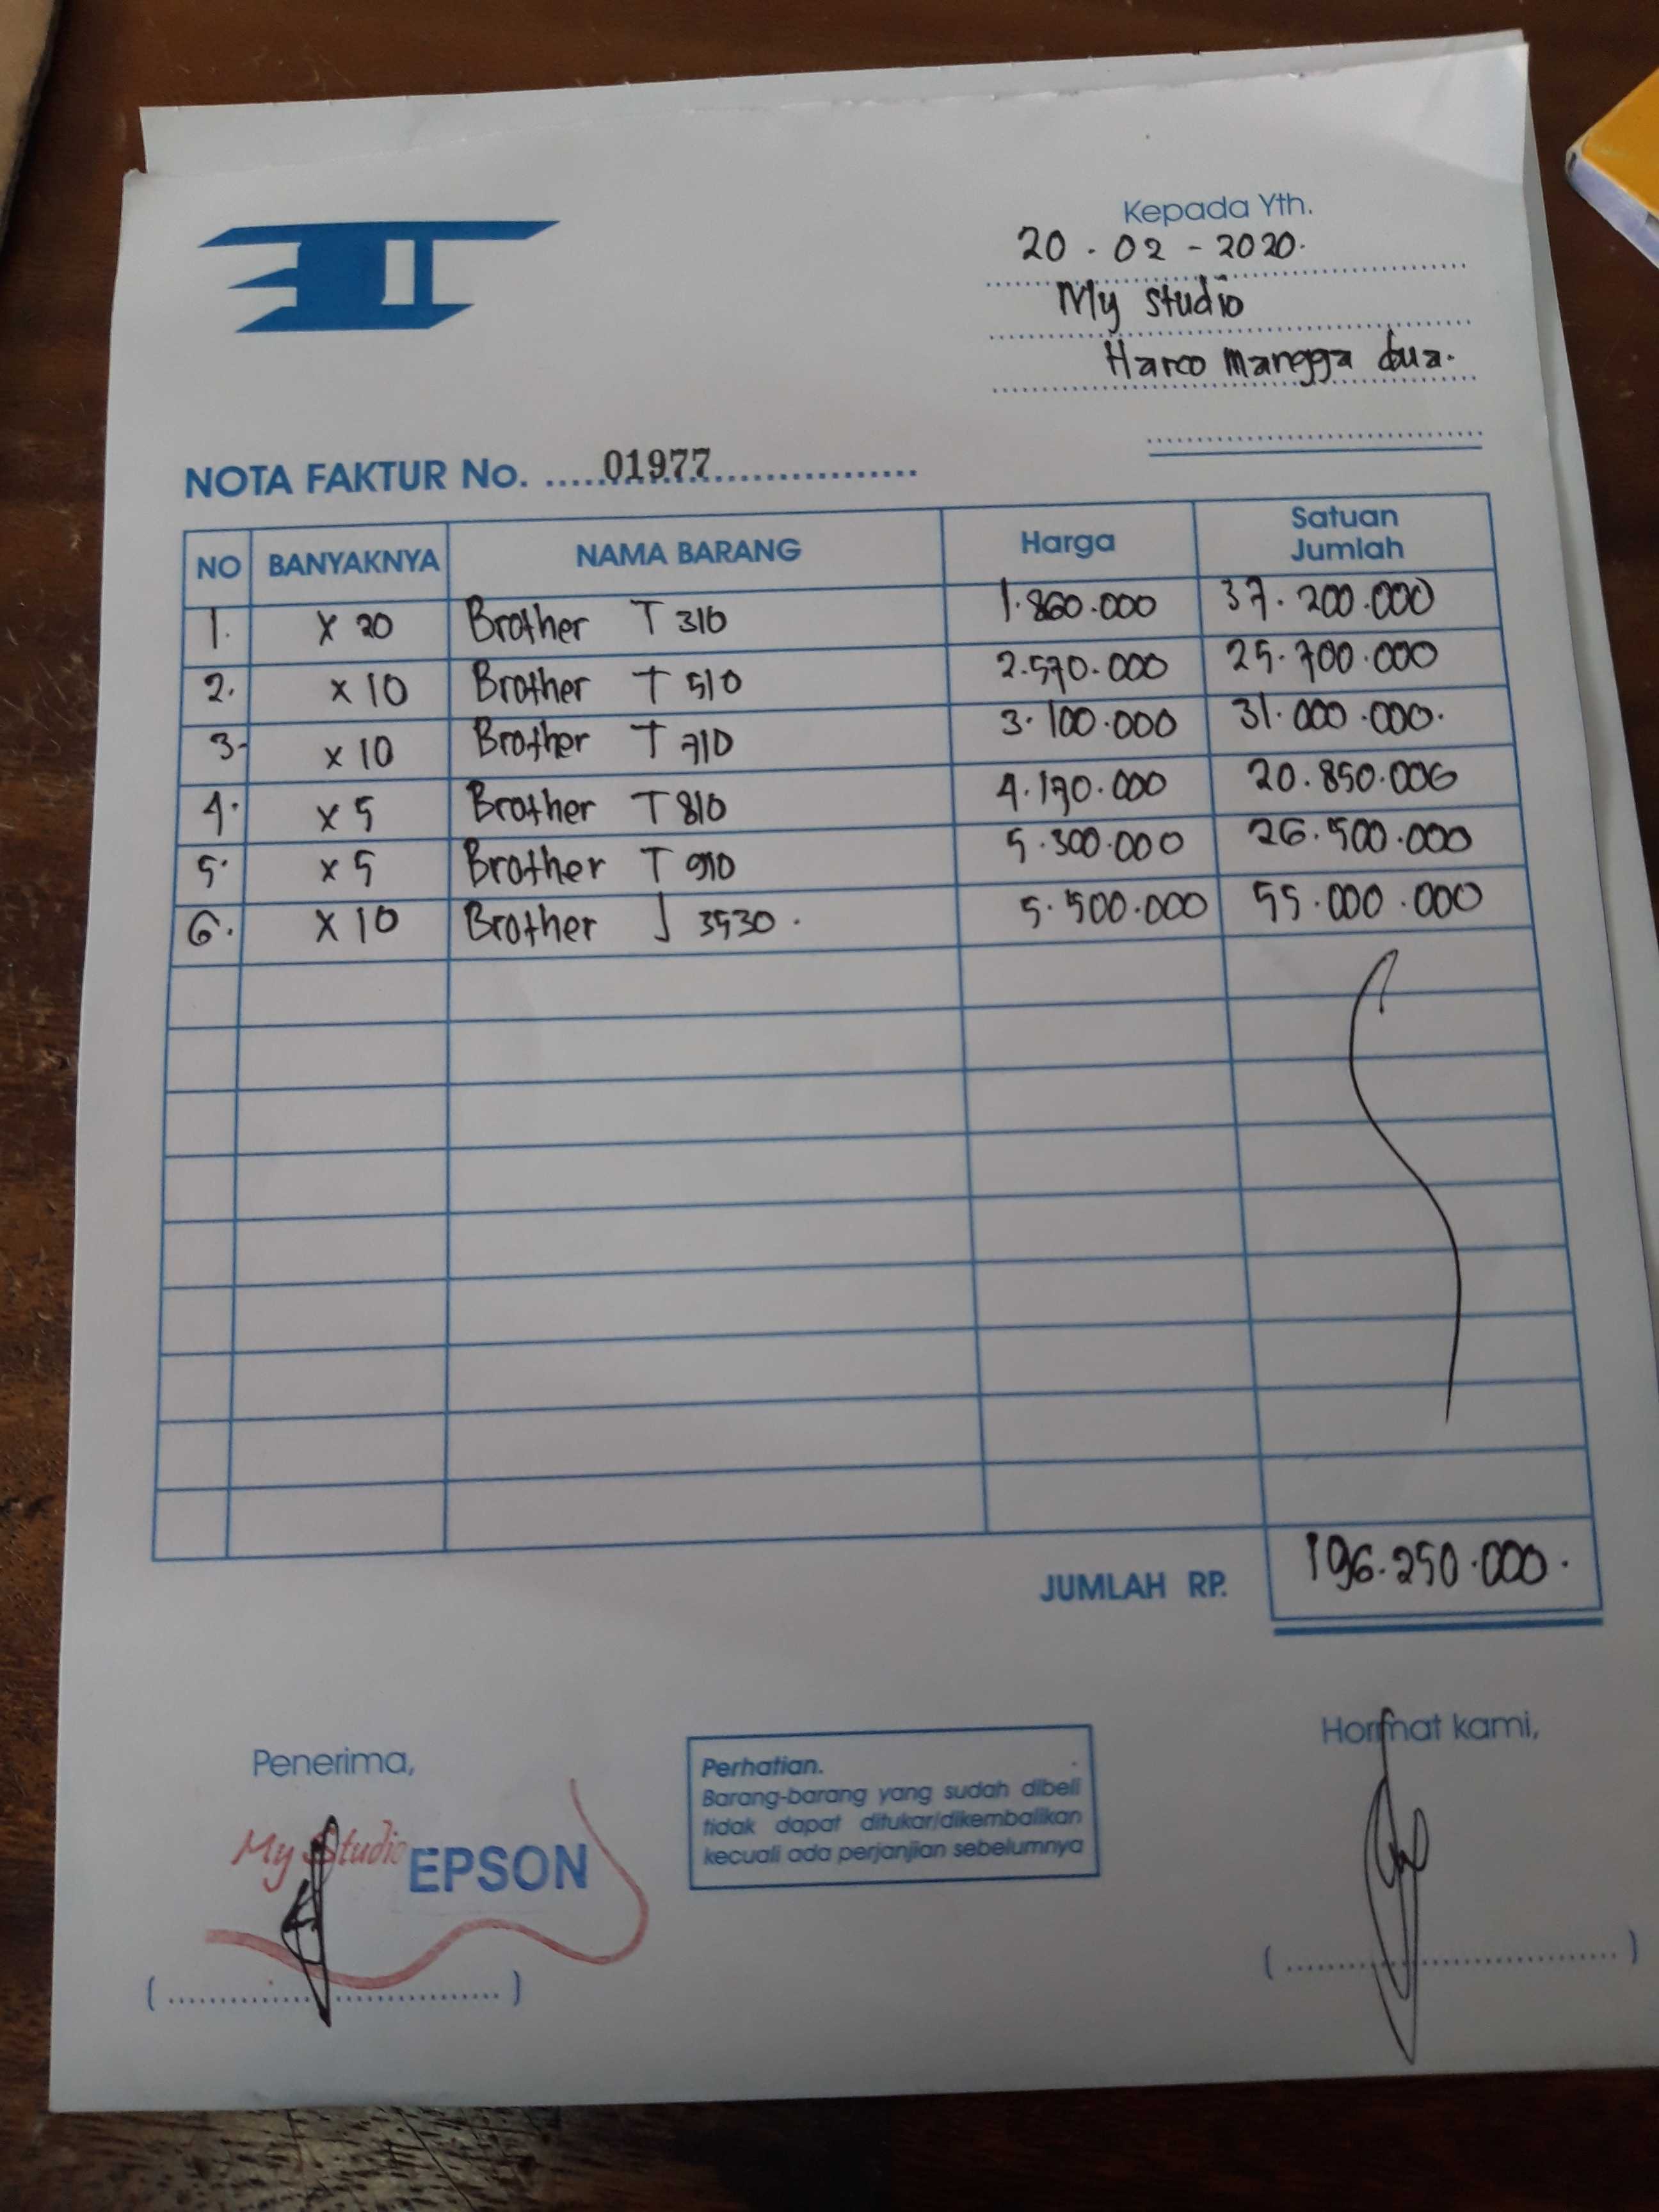 Kepada Yth.
20 - 02 - 2020.
My studio
Harco mangga dua.
NOTA FAKTUR No. .....01977....................
NO BANYAKNYA NAMA BARANG Harga Satuan Jumlah
1. x 20 Brother T 310 1.860.000 37.200.000
2. x 10 Brother T 510 2.570.000 25.700.000
3. x 10 Brother T 710 3.100.000 31.000.000.
4. x 5 Brother T 810 4.170.000 20.850.000
5. x 5 Brother T 910 5.300.000 26.500.000
6. x 10 Brother J 3530. 5.500.000 55.000.000
JUMLAH RP. 196.250.000.
Penerima,
My Studio EPSON
Perhatian.
Barang-barang yang sudah dibeli
tidak dapat ditukar/dikembalikan
kecuali ada perjanjian sebelumnya
Hormat kami,